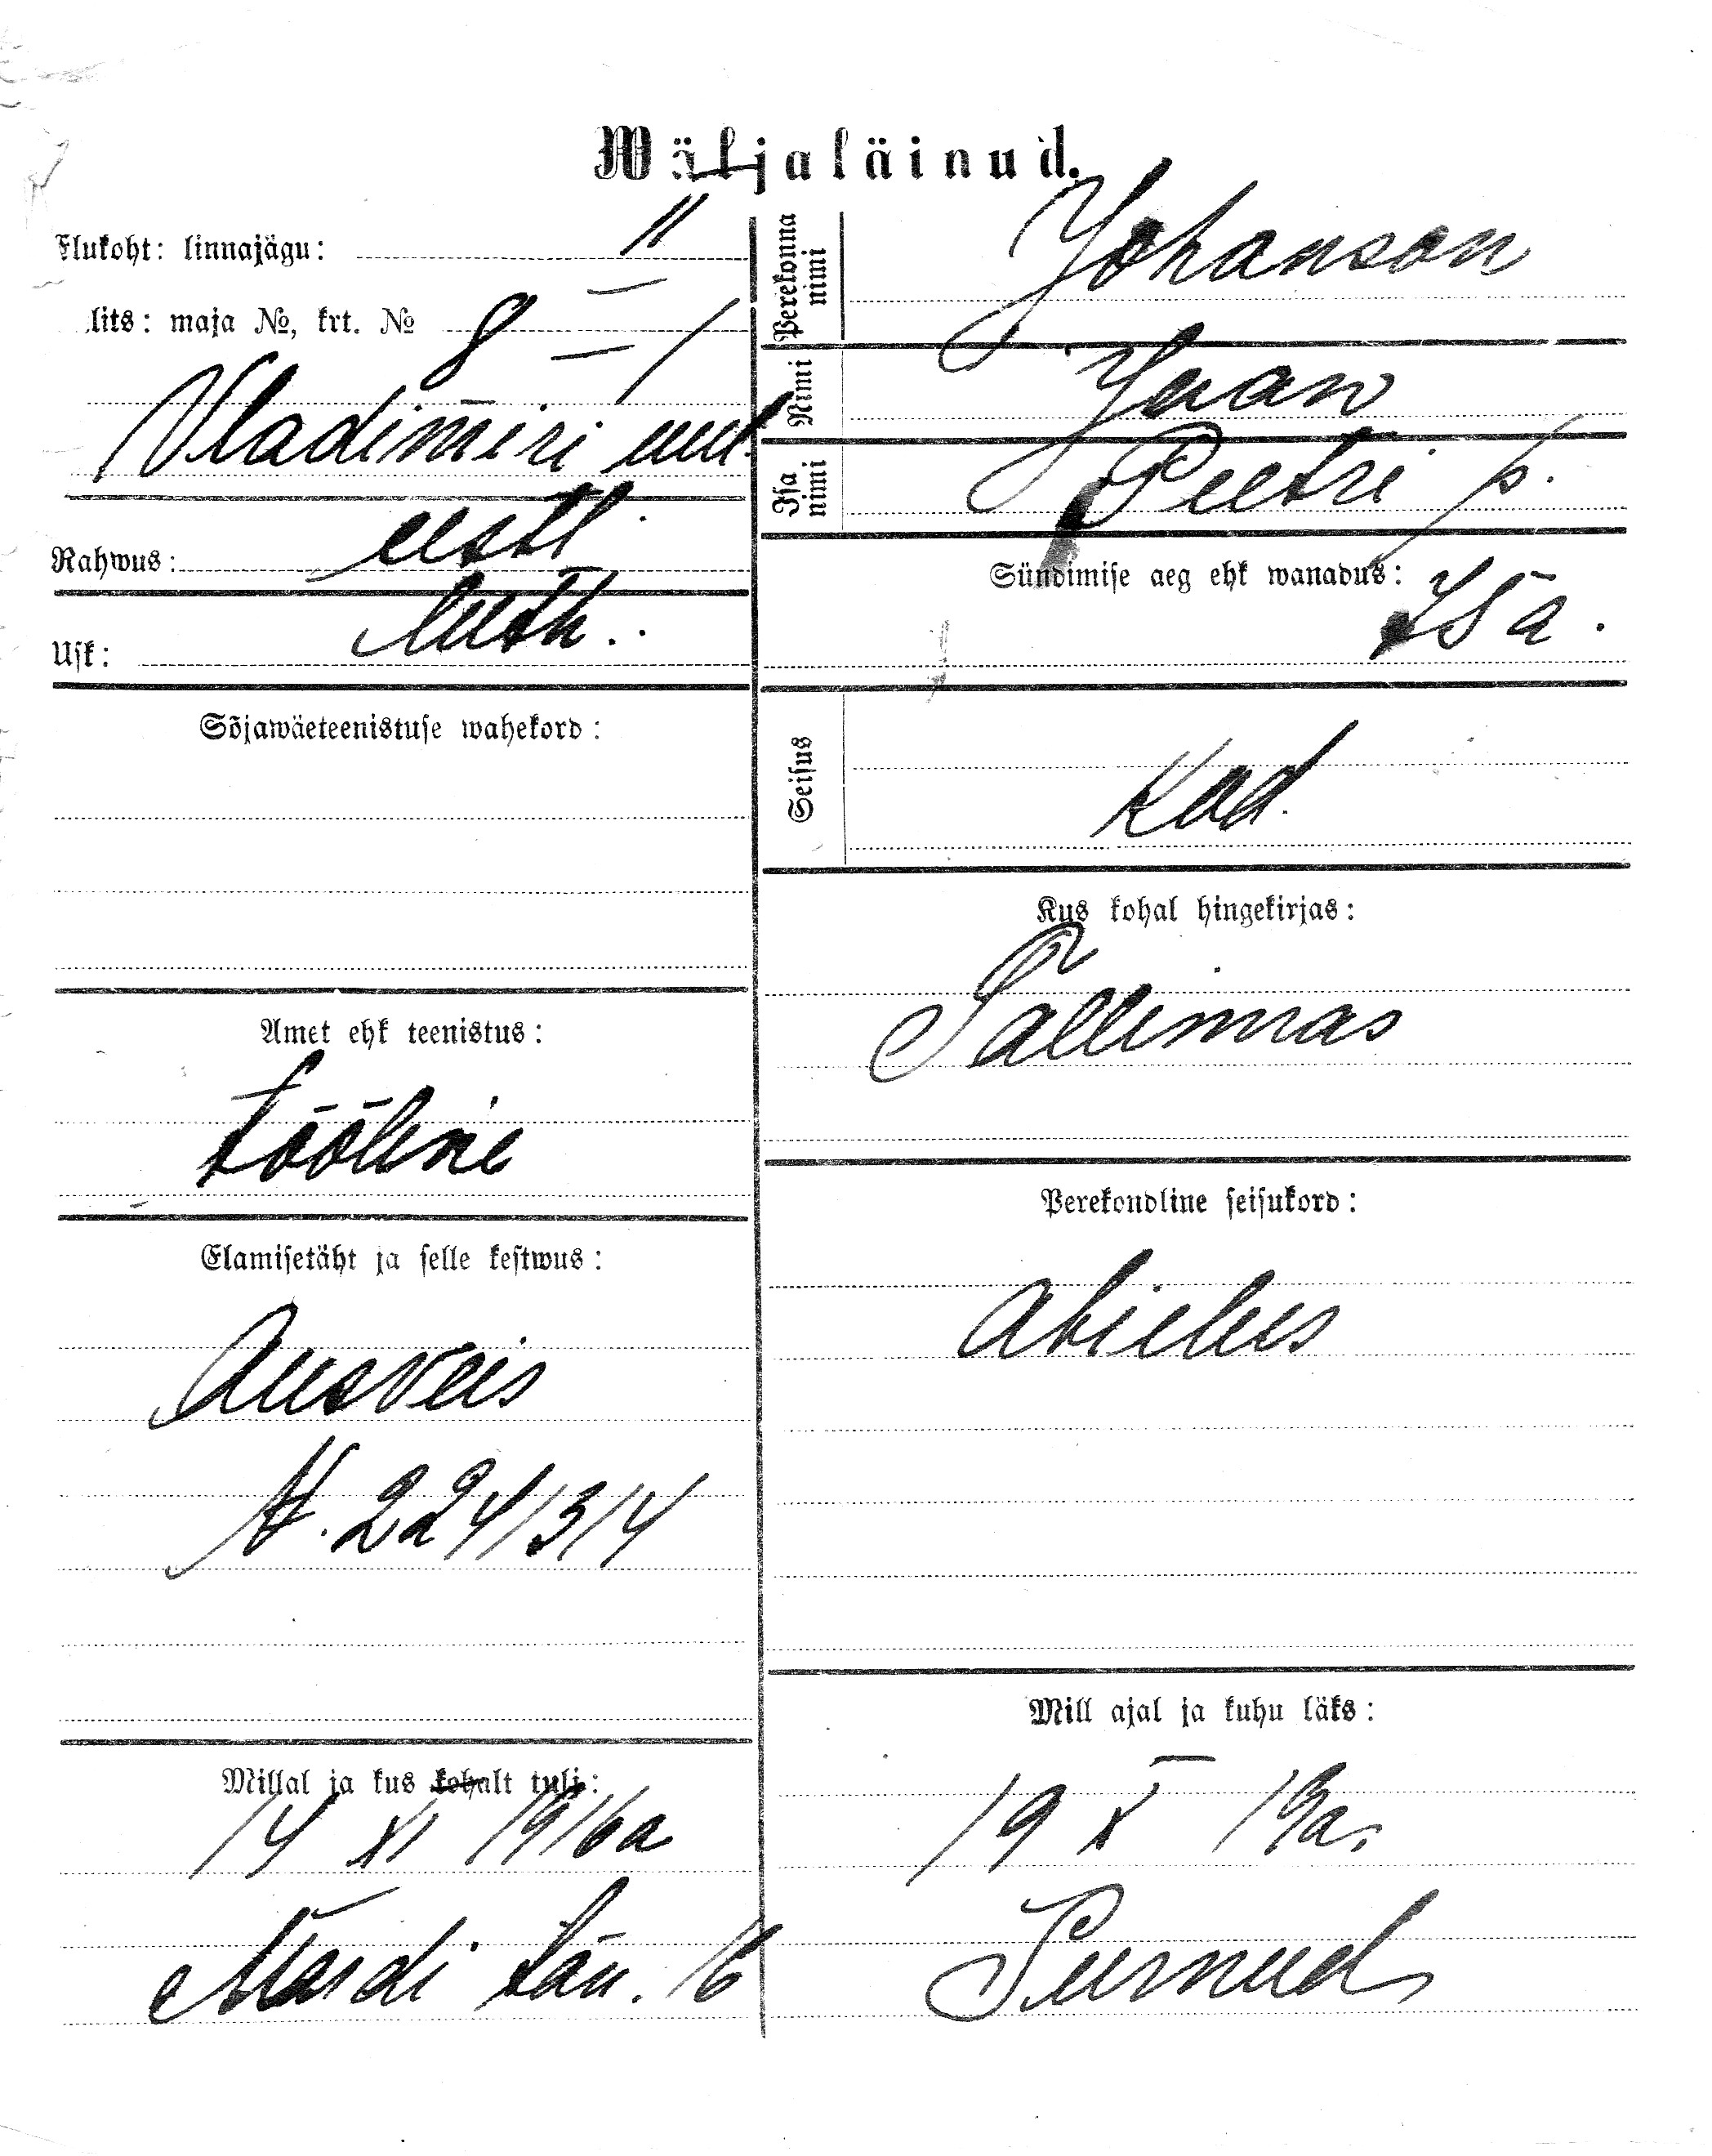 Wäljaläinud.
Elukoht: linnajägu: II
lits: maja №, krt. № 8 — 1
Vladimiri uul.
Rahwus: eestl.
Usk: luth.
Sõjawäeteenistuse wahekord:
Amet ehk teenistus:
tööline
Elamisetäht ja selle kestwus:
Ausveis
N. 224/3/4
Millal ja kus kohalt tuli:
14 XI 1916 a
Mardi tän. 16
Perekonna nimi Johanson
Nimi Jaan
Isa nimi Peetri p.
Sündimise aeg ehk wanadus:
Seisus
Kod.
Kus kohal hingekirjas:
Tallinnas
Perekondline seisukord:
Abielus
Mill ajal ja kuhu läks:
19 X
Surnud